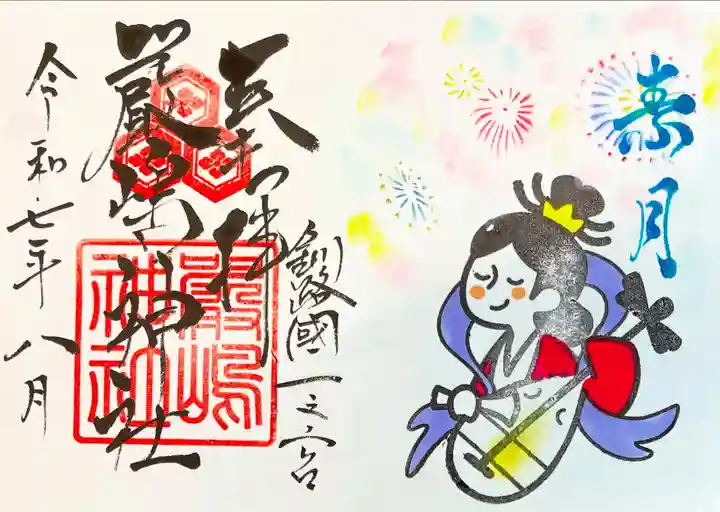 素月
奉拝
釧路國一之宮
厳島神社
嚴嶋神社
令和七年八月